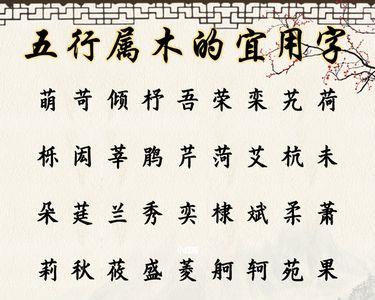 五行属木的宜用字
萌苛倾杼吾荣栾艽荷
栎闳莘鹃芹菏艾杭未
朵莛兰秀奕棣斌柔萧
莉秋莜盛菱舸轲苑果